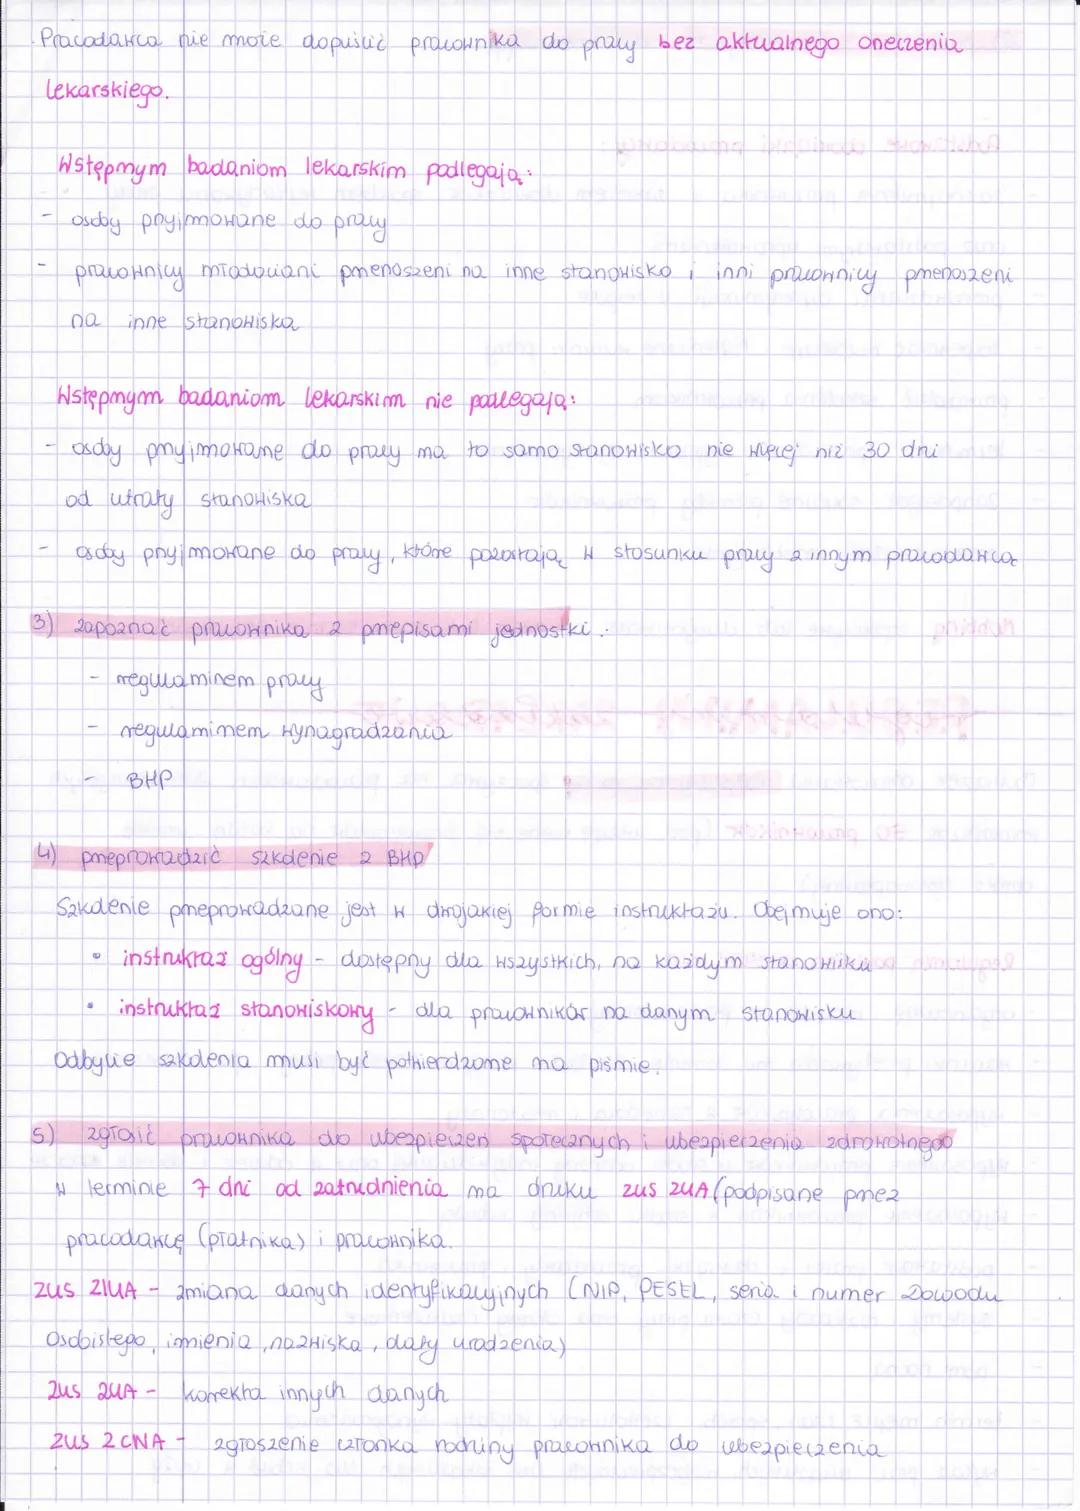 Pracodawca nie może dopuścić pracownika do pracy bez aktualnego orzeczenia
lekarskiego.
Wstępnym badaniom lekarskim podlegają:
- osoby przyjmowane do pracy
- pracownicy młodociani przenoszeni na inne stanowisko i inni pracownicy przenoszeni
na inne stanowiska
Wstępnym badaniom lekarskim nie podlegają:
- osoby przyjmowane do pracy na to samo stanowisko nie więcej niż 30 dni
od utraty stanowiska
- osoby przyjmowane do pracy, które pozostają w stosunku pracy z innym pracodawcą
3) zapoznać pracownika z przepisami jednostki:
- regulaminem pracy
- regulaminem wynagradzania
- BHP
4) przeprowadzić szkolenie z BHP
Szkolenie przeprowadzane jest w dwojakiej formie instruktażu. Obejmuje ono:
• instruktaż ogólny - dostępny dla wszystkich, na każdym stanowisku
• instruktaż stanowiskowy - dla pracowników na danym stanowisku
Odbycie szkolenia musi być potwierdzone na piśmie.
5) zgłosić pracownika do ubezpieczeń społecznych i ubezpieczenia zdrowotnego
w terminie 7 dni od zatrudnienia na druku ZUS ZUA (podpisane przez
pracodawcę (płatnika) i pracownika.
ZUS ZIUA - zmiana danych identyfikacyjnych (NIP, PESEL, seria i numer Dowodu
Osobistego, imienia, nazwiska, daty urodzenia)
ZUS ZUA - korekta innych danych
ZUS ZCNA - zgłoszenie członka rodziny pracownika do ubezpieczenia